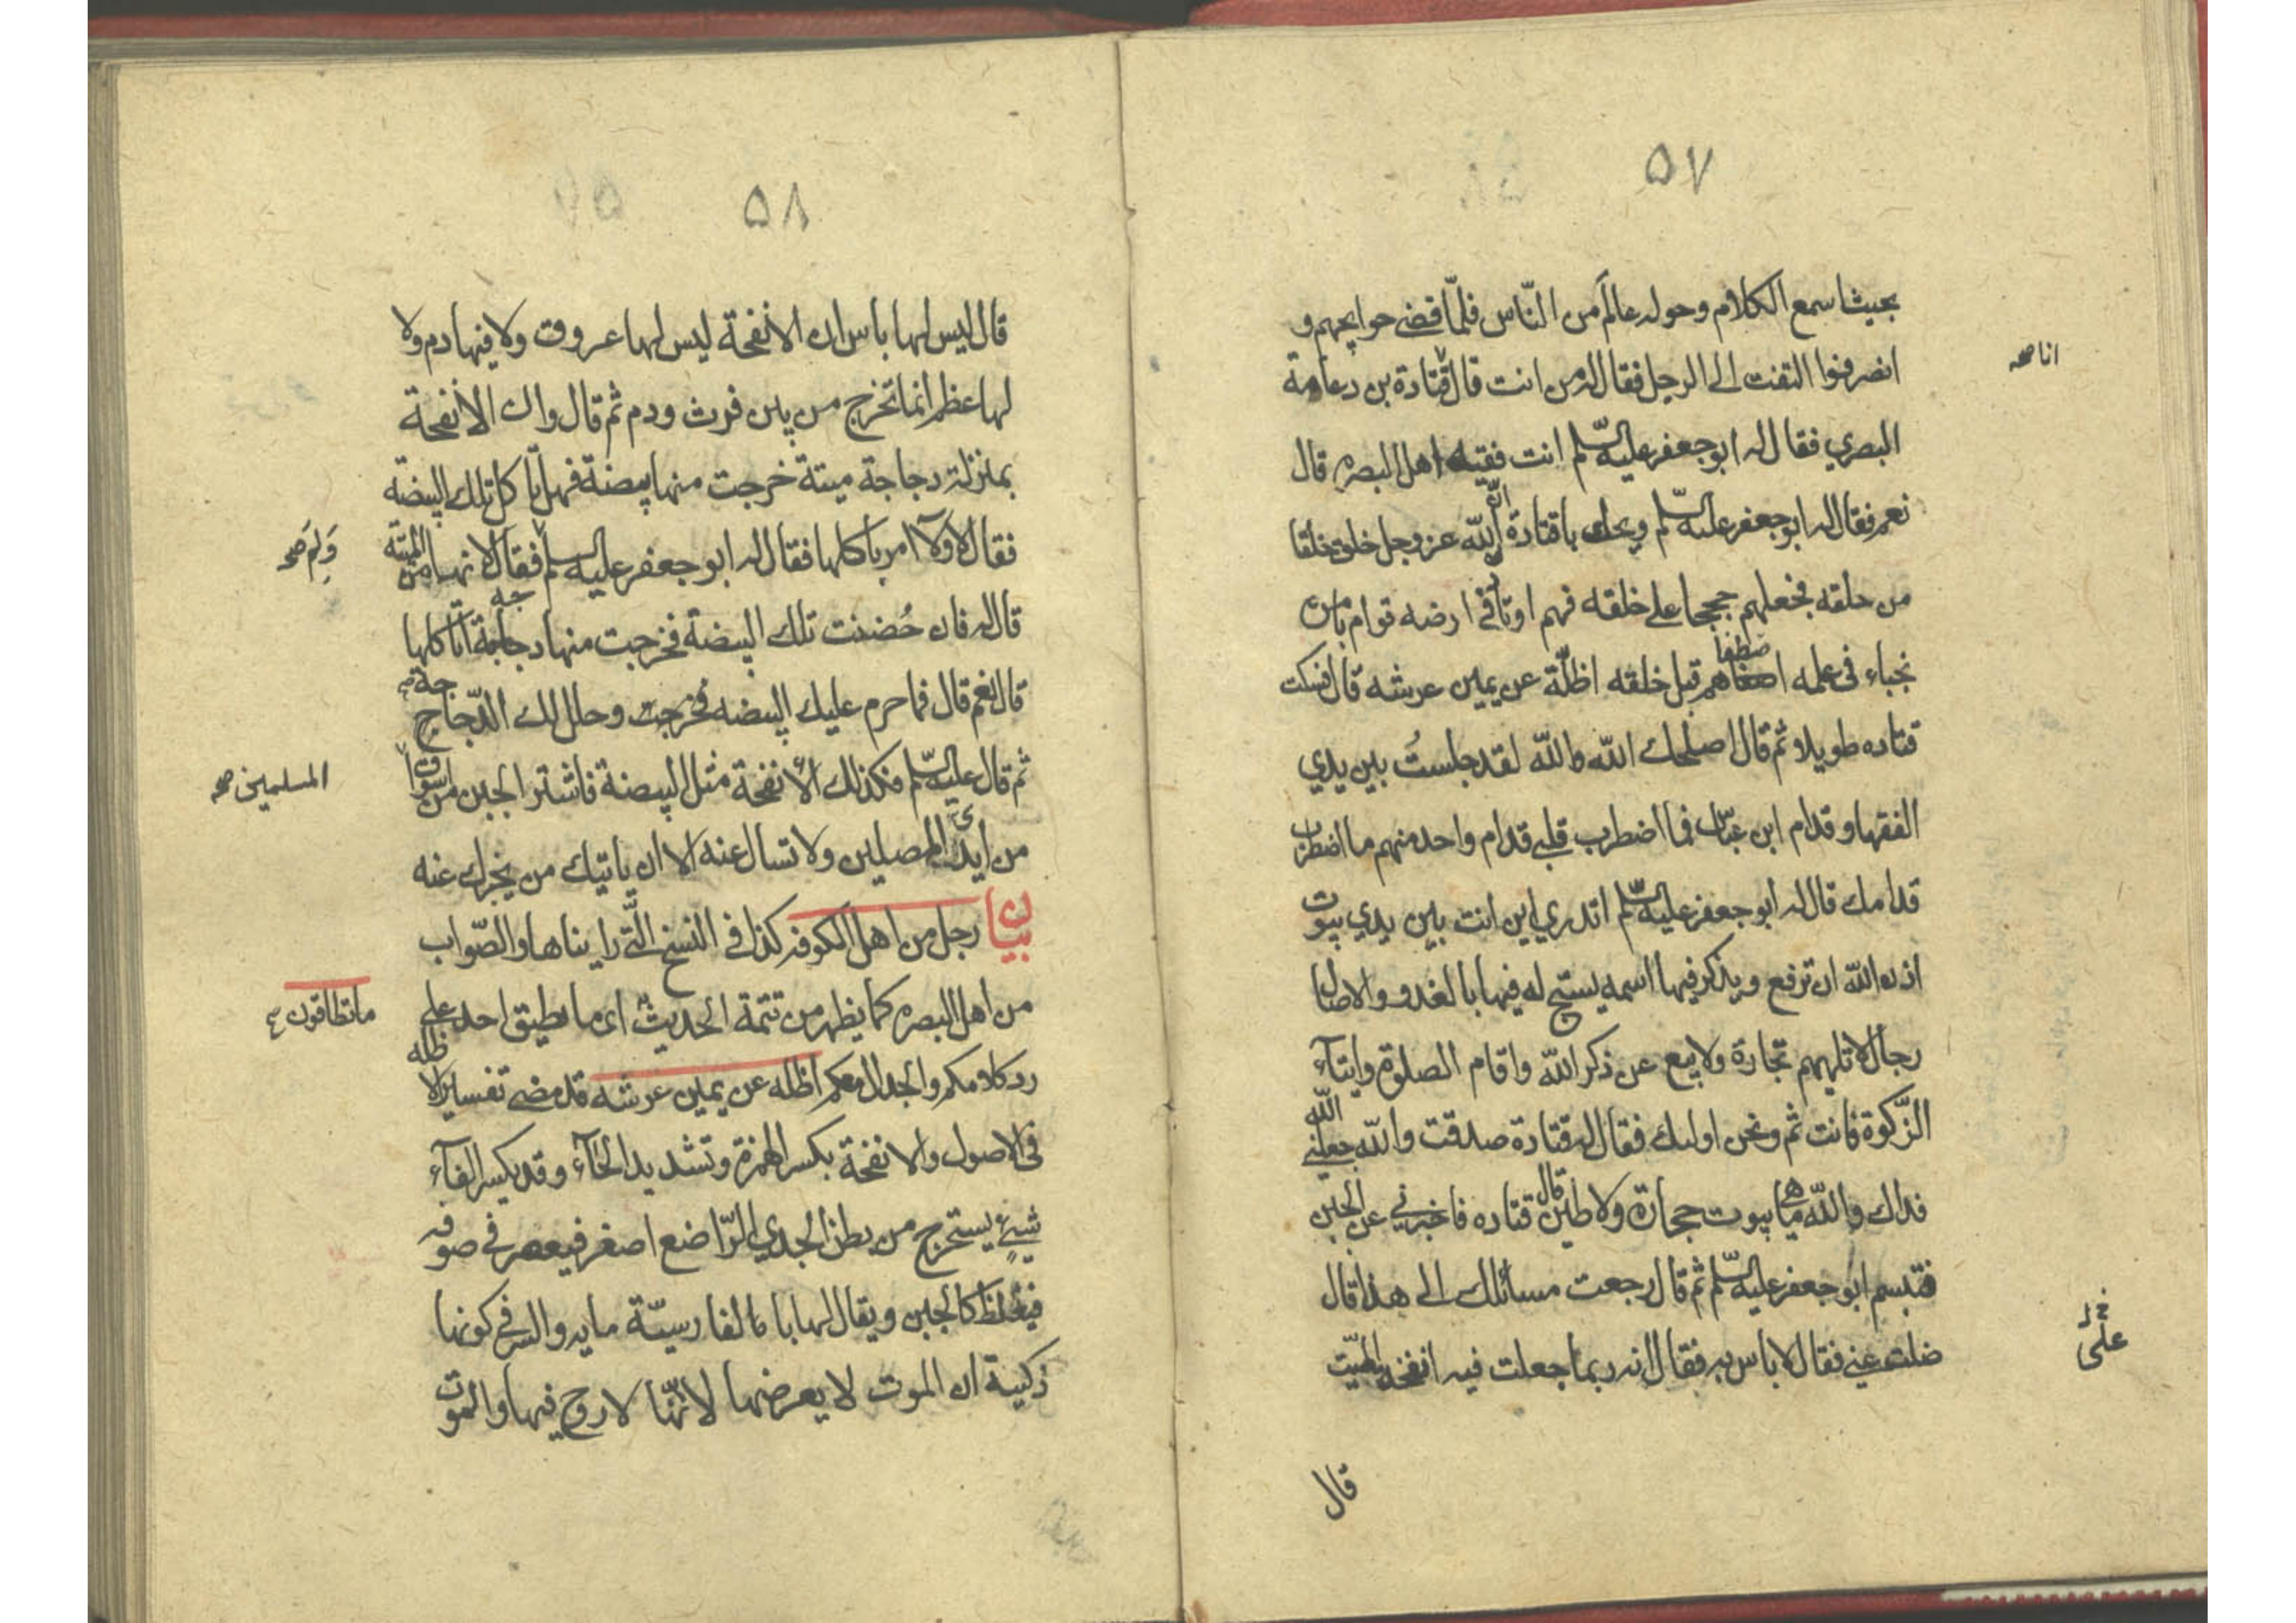 ٥٧
بحيث اسمع الكلام وحوله عالم من النّاس فلمّا قضى حوايجهم و
انصرفوا التفت الى الرجل فقال له من انت قال قتادة بن دعامة
انا صح
البصري فقال له ابو جعفر عليه السّلم انت فقيه اهل البصره قال
نعم فقال له ابو جعفر عليه السّلم ويحك يا قتادة ان الله عز وجل خلق خلقا
من خلقه فجعلهم حججا على خلقه فهم اوتاد في ارضه قوام بامره
نجباء فى علمه اصطفاهم قبل خلقه اظلّة عن يمين عرشه قال فسكت
قتاده طويلا ثم قال اصلحك الله والله لقد جلستُ بين يدي
الفقها وقدام ابن عبّاس فما اضطرب قلبي قدام واحد منهم ما اضطرب
قدامك قال له ابو جعفر عليه السّلم اتدري اين انت بين يدي بيوت
اذن الله ان ترفع ويذكر فيها اسمه يسبّح له فيها بالغدو والاصال
رجال لا تلهيهم تجارة ولا بيع عن ذكر الله واقام الصلوة وايتآء
الزّكوة فانت ثم ونحن اولىك فقال له قتادة صدقت والله جعلني الله
فداك والله ما هى بيوت حجارة ولا طين قال قتاده فاخبرني عن الجبن
فتبسم ابو جعفر عليه السّلم ثم قال رجعت مسائلك الى هذا قال
ضلت عني فقال لا باس به فقال انه ربما جعلت فيه انفخه الميّت
علىّ
قال
٥٨
قال ليس لها باس ان الانفحة ليس لها عروق ولا فيها دم ولا
لها عظم انما تخرج من بين فرث ودم ثم قال وان الانفحة
بمنزلة دجاجة ميتة خرجت منها بيضة فهل تاكل تلك البيضة
فقال لا ولا امر باكلها فقال له ابو جعفر عليه السلم فقال لانها من الميتة
وَلِمَ صح
قال له فان حُضنت تلك البيضة فخرجت منها دجاجة اتاكلها
قال نعم قال فما حرم عليك البيضه وحلل لك الدّجاجة
ثم قال عليه السّلم فكذلك الانفحة مثل البيضة فاشتر الجبن من اسواق
المسلمين صح
من ايدي المصلين ولا تسال عنه الا ان ياتيك من يخبرك عنه
بيان رجل من اهل الكوفه كذا في النسخ الّتي رايناها والصّواب
من اهل البصره كما يظهر من تتمة الحديث اى ما يطيق احد على
ما تطاقون
رد كلامكم والجدال معكم اظله عن يمين عرشه قد مضى تفسير الاظله
فى الاصول والانفحة بكسر الهمزة وتشديد الحآء وقد يكسر الفآء
شيئ يستخرج من بطن الجدي الرّاضع اصفر فيعصر في صوفه
فيغلظ كالجبن ويقال لها بالفارسيّة مايه والسر في كونها
ذكية ان الموت لا يعرضها لانّها لا روح فيها والموت